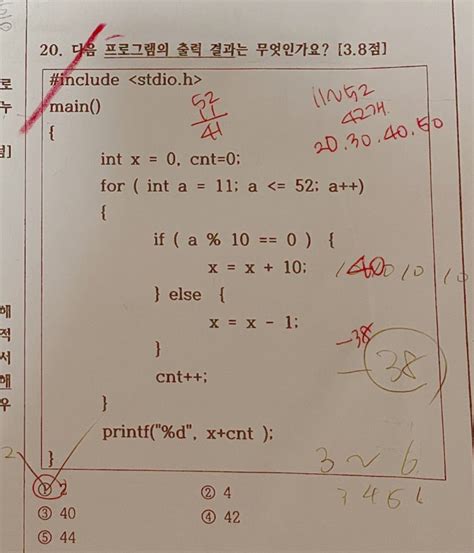 20. 다음 프로그램의 출력 결과는 무엇인가요? [3.8점]
#include <stdio.h>
main()
{
int x = 0, cnt=0;
for ( int a = 11; a <= 52; a++)
{
if ( a % 10 == 0 ) {
x = x + 10;
} else {
x = x - 1;
}
cnt++;
}
printf("%d", x+cnt );
}
① 2
② 4
③ 40
④ 42
⑤ 44
52
11
41
11~52
42개
20.30.40.50
40
10 10
-38
-38
3 ~ 6
3 4 5 6
2
로
누
점]
해
적
서
해
우